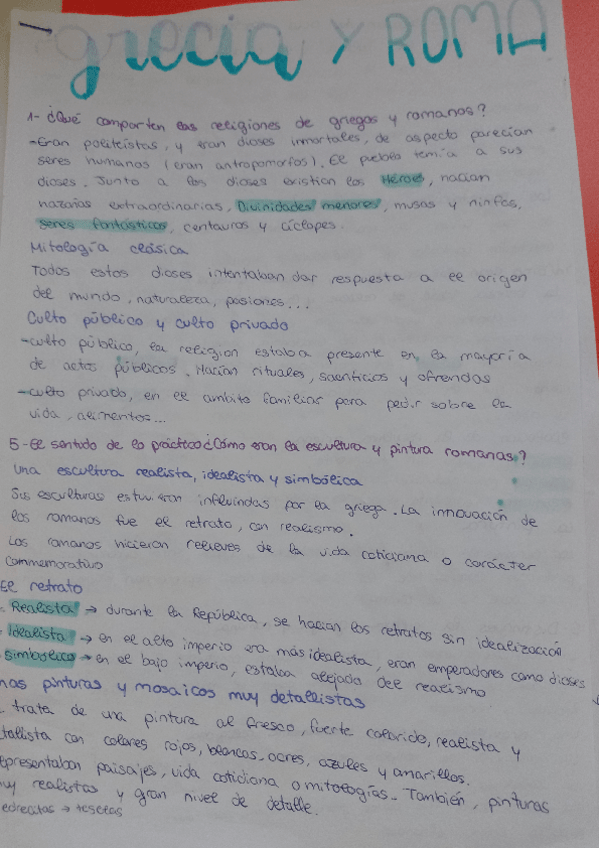 grecia y ROMA
1- ¿Qué comparten las religiones de griegos y romanos?
-Eran politeístas, y eran dioses inmortales, de aspecto parecian
seres humanos (eran antropomorfos). El pueblo temía a sus
dioses. Junto a los dioses existían los Héroes, hacían
hazañas extraordinarias, Divinidades menores, musas y ninfas,
seres fantásticos, centauros y cíclopes.
Mitología clásica
Todos estos dioses intentaban dar respuesta a el origen
del mundo, naturaleza, pasiones...
Culto público y culto privado
-culto público, la religion estaba presente en la mayoría
de actos públicos. Hacían rituales, sacrificios y ofrendas
-culto privado, en el ambito familiar para pedir sobre la
vida, alimentos...
5-El sentido de lo práctico ¿Cómo eran la escultura y pintura romanas?
Una escultura realista, idealista y simbólica
Sus esculturas estuvieron influindas por la griega. La innovación de
los romanos fue el retrato, con realismo.
Los romanos hicieron relieves de la vida cotidiana o carácter
commemorativo
El retrato
Realista → durante la República, se hacian los retratos sin idealización
Idealista → en el alto imperio era más idealista, eran emperadores como dioses
simbólico → en el bajo imperio, estaba alejado del realismo
nas pinturas y mosaicos muy detallistas
trata de una pintura al fresco, fuerte colorido, realista y
tallista con colores rojos, blancos, ocres, azules y amarillos.
epresentaban paisajes, vida cotidiana o mitologías. También, pinturas
uy realistas y gran nivel de detalle.
edrecitas → teselas